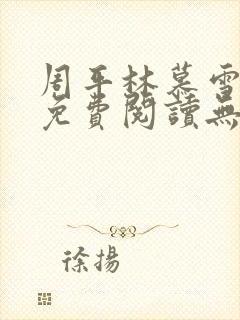 周平林慕雪
免費閱讀無
徐揚